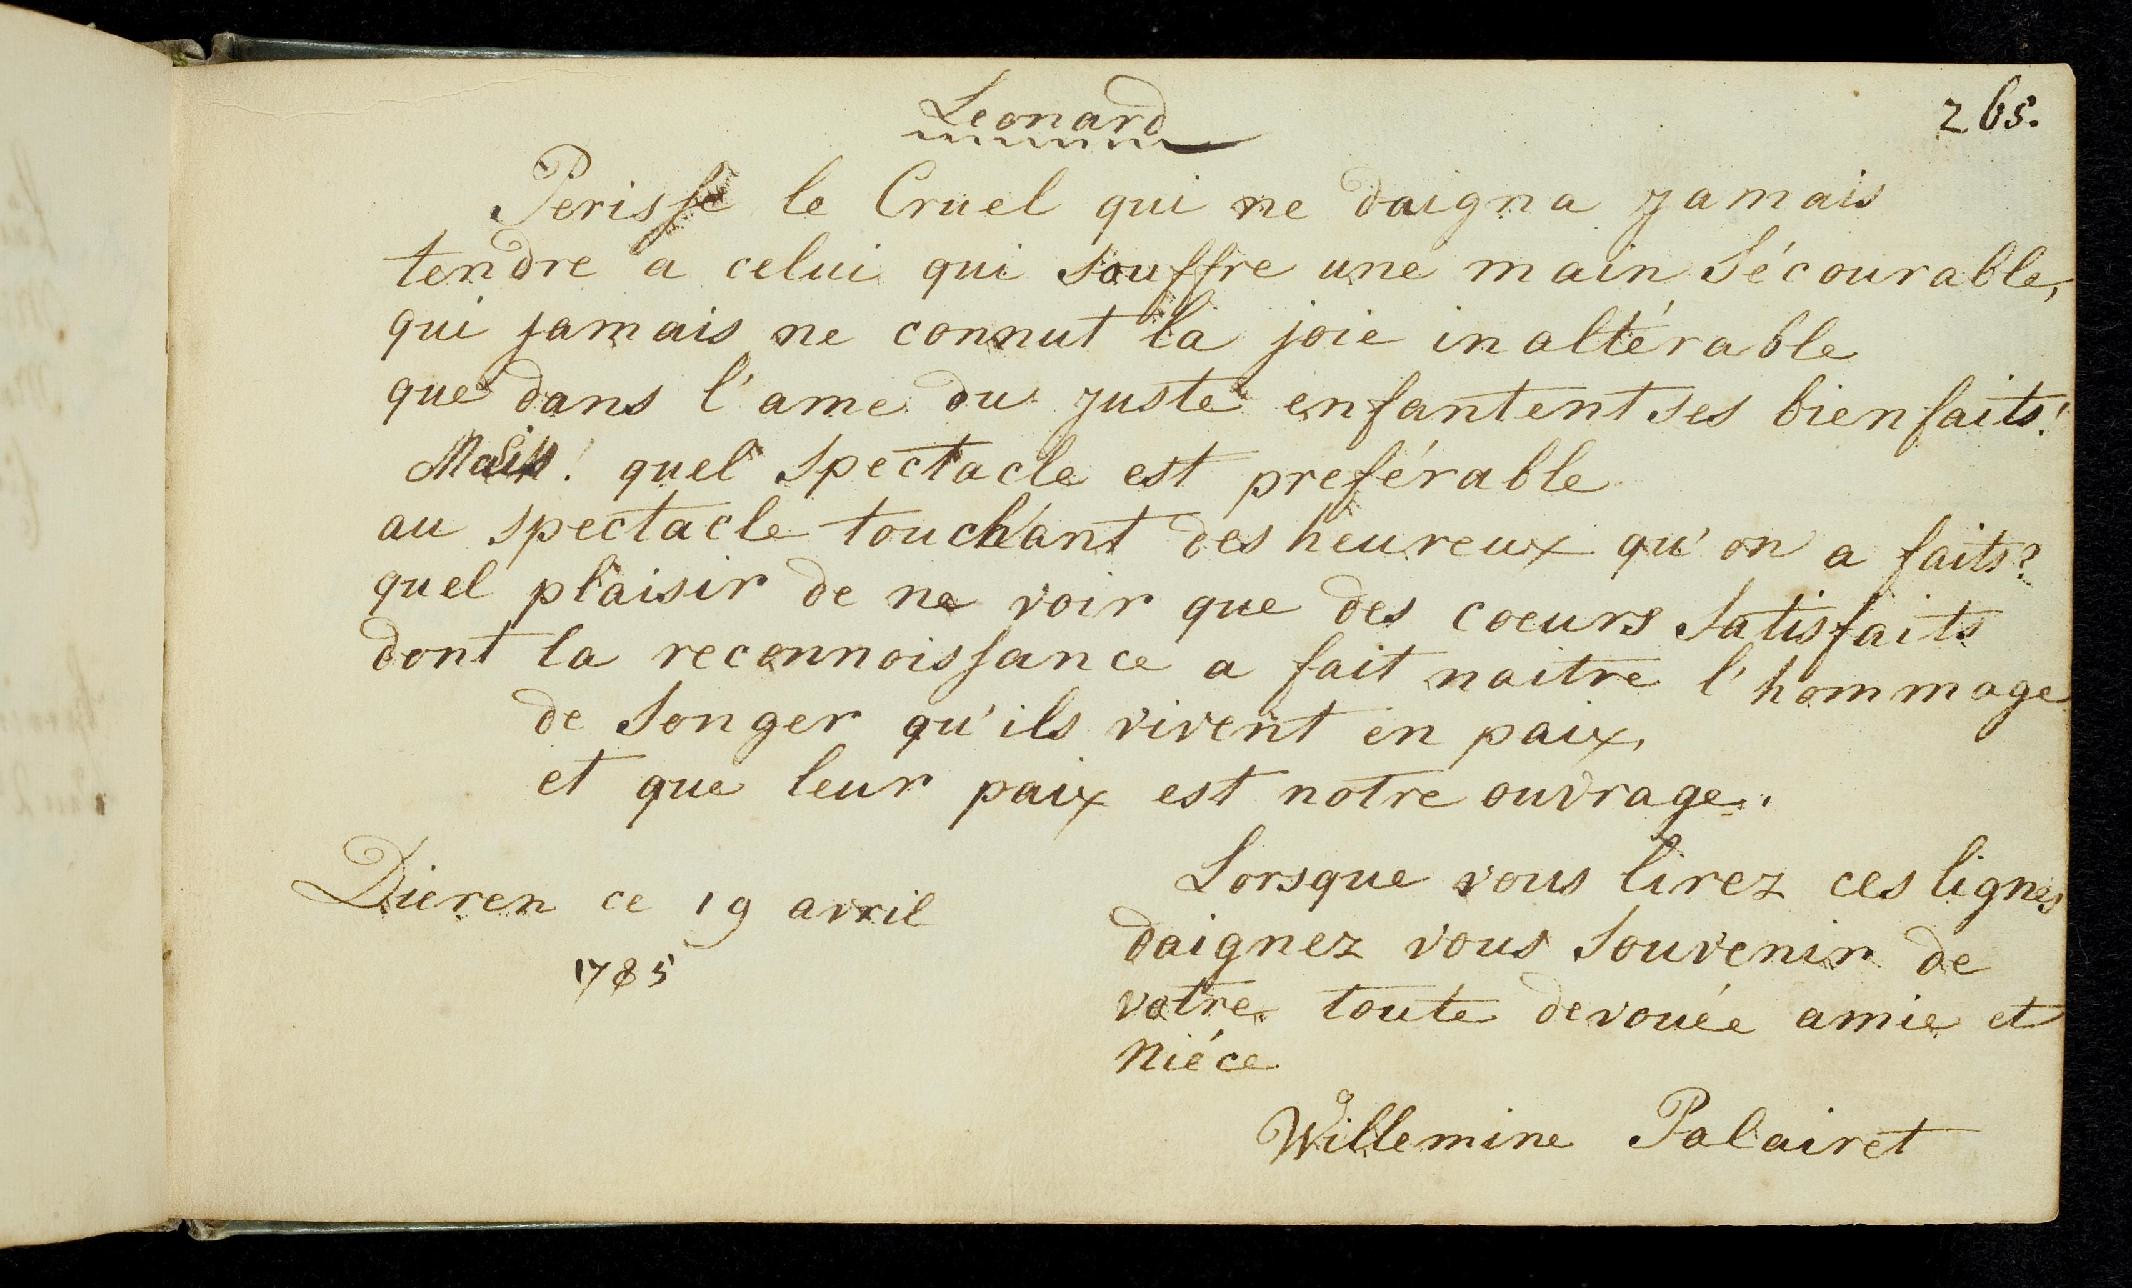 Leonard
265.
Perisse le Cruel qui ne daigna jamais
tendre a celui qui souffre une main sécourable,
qui jamais ne connut la joie inaltérable
que dans l'ame du juste enfantent ses bienfaits!
quel spectacle est preférable
au spectacle touchant des heureux qu'on a faits?
quel plaisir de ne voir que des coeurs satisfaits
dont la reconnoissance a fait naitre l'hommage
de songer qu'ils vivent en paix,
et que leur paix est notre ouvrage.
Dieren ce 19 avril
1785
Lorsque vous lirez ces lignes
daignez vous souvenir de
votre toute devouée amie et
niéce
Willemine Palairet